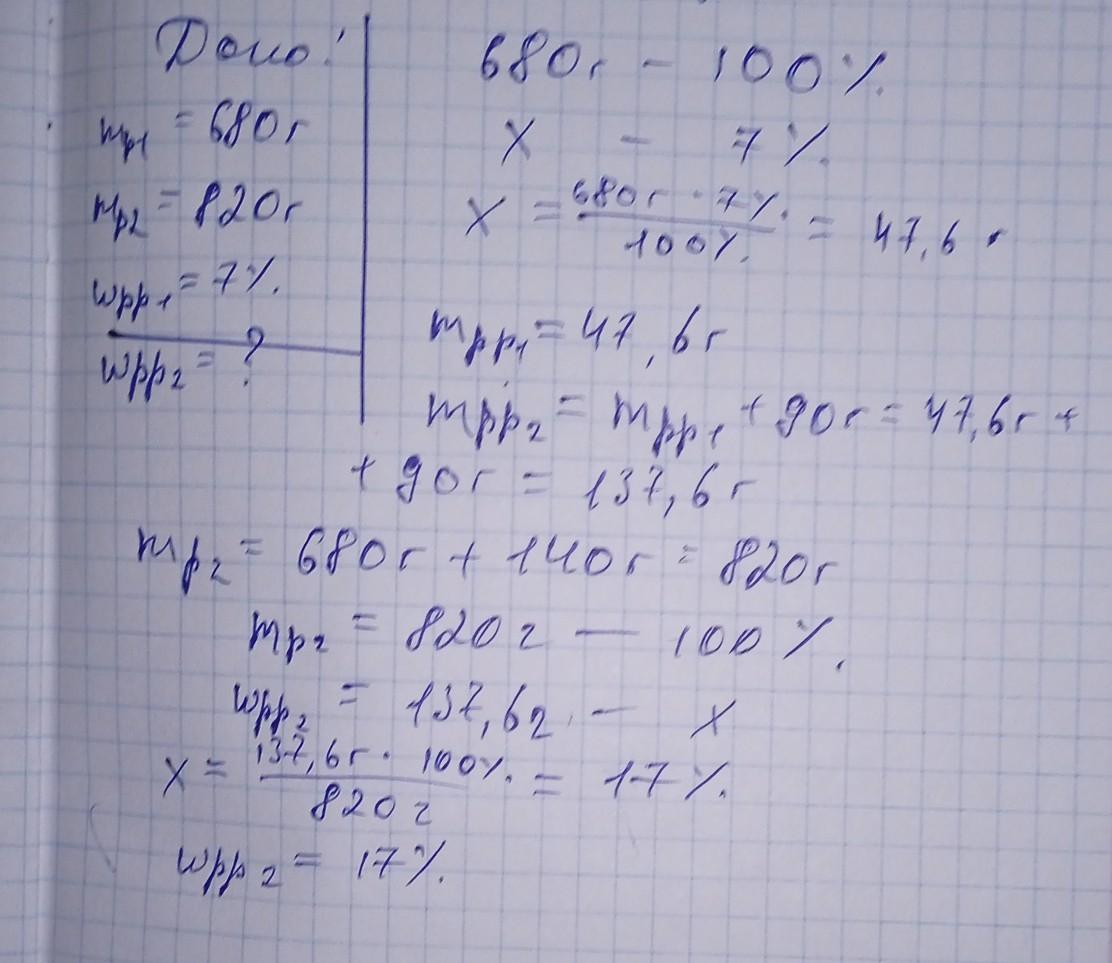 Дано:
mp1 = 680г
mp2 = 820г
wpp1 = 7%.
wpp2 = ?
680г - 100%.
X - 7%.
X = 680г · 7%. / 100%. = 47,6 г
mpp1 = 47,6г
mpp2 = mpp1 + 90г = 47,6г +
+ 90г = 137,6г
mp2 = 680г + 140г = 820г
mp2 = 820г — 100%.
wpp2 = 137,6г - X
X = 137,6г · 100%. / 820г = 17%.
wpp2 = 17%.